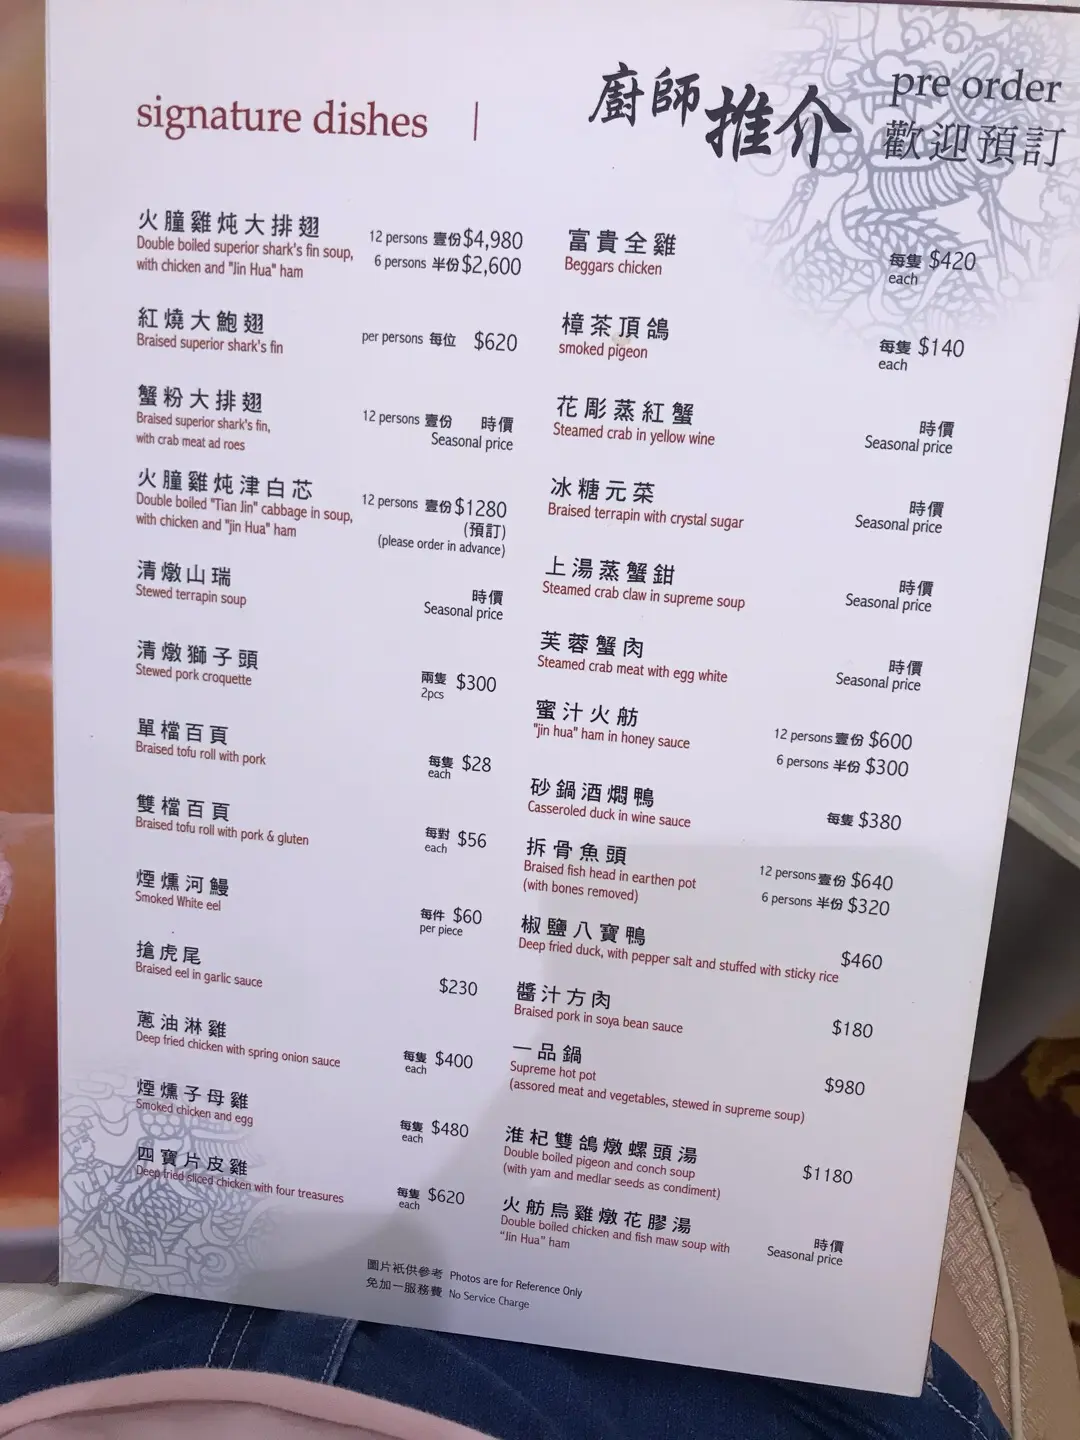 signature dishes
廚師推介
pre order
歡迎預訂
火朣雞炖大排翅
Double boiled superior shark's fin soup,
with chicken and "Jin Hua" ham
12 persons 壹份 $4,980
6 persons 半份 $2,600
紅燒大鮑翅
Braised superior shark's fin
per persons 每位 $620
蟹粉大排翅
Braised superior shark's fin,
with crab meat ad roes
12 persons 壹份 時價
Seasonal price
火朣雞炖津白芯
Double boiled "Tian Jin" cabbage in soup,
with chicken and "jin Hua" ham
12 persons 壹份 $1280
(預訂)
(please order in advance)
清燉山瑞
Stewed terrapin soup
時價
Seasonal price
清燉獅子頭
Stewed pork croquette
兩隻 $300
2pcs
單檔百頁
Braised tofu roll with pork
每隻 $28
each
雙檔百頁
Braised tofu roll with pork & gluten
每對 $56
each
煙燻河鰻
Smoked White eel
每件 $60
per piece
搶虎尾
Braised eel in garlic sauce
$230
蔥油淋雞
Deep fried chicken with spring onion sauce
每隻 $400
each
煙燻子母雞
Smoked chicken and egg
每隻 $480
each
四寶片皮雞
Deep fried sliced chicken with four treasures
每隻 $620
each
富貴全雞
Beggars chicken
每隻 $420
each
樟茶頂鴿
smoked pigeon
每隻 $140
each
花彫蒸紅蟹
Steamed crab in yellow wine
時價
Seasonal price
冰糖元菜
Braised terrapin with crystal sugar
時價
Seasonal price
上湯蒸蟹鉗
Steamed crab claw in supreme soup
時價
Seasonal price
芙蓉蟹肉
Steamed crab meat with egg white
時價
Seasonal price
蜜汁火舫
"jin hua" ham in honey sauce
12 persons 壹份 $600
6 persons 半份 $300
砂鍋酒燜鴨
Casseroled duck in wine sauce
每隻 $380
拆骨魚頭
Braised fish head in earthen pot
(with bones removed)
12 persons 壹份 $640
6 persons 半份 $320
椒鹽八寶鴨
Deep fried duck, with pepper salt and stuffed with sticky rice
$460
醬汁方肉
Braised pork in soya bean sauce
$180
一品鍋
Supreme hot pot
(assored meat and vegetables, stewed in supreme soup)
$980
淮杞雙鴿燉螺頭湯
Double boiled pigeon and conch soup
(with yam and medlar seeds as condiment)
$1180
火舫烏雞燉花膠湯
Double boiled chicken and fish maw soup with
"Jin Hua" ham
時價
Seasonal price
圖片衹供參考 Photos are for Reference Only
免加一服務費 No Service Charge